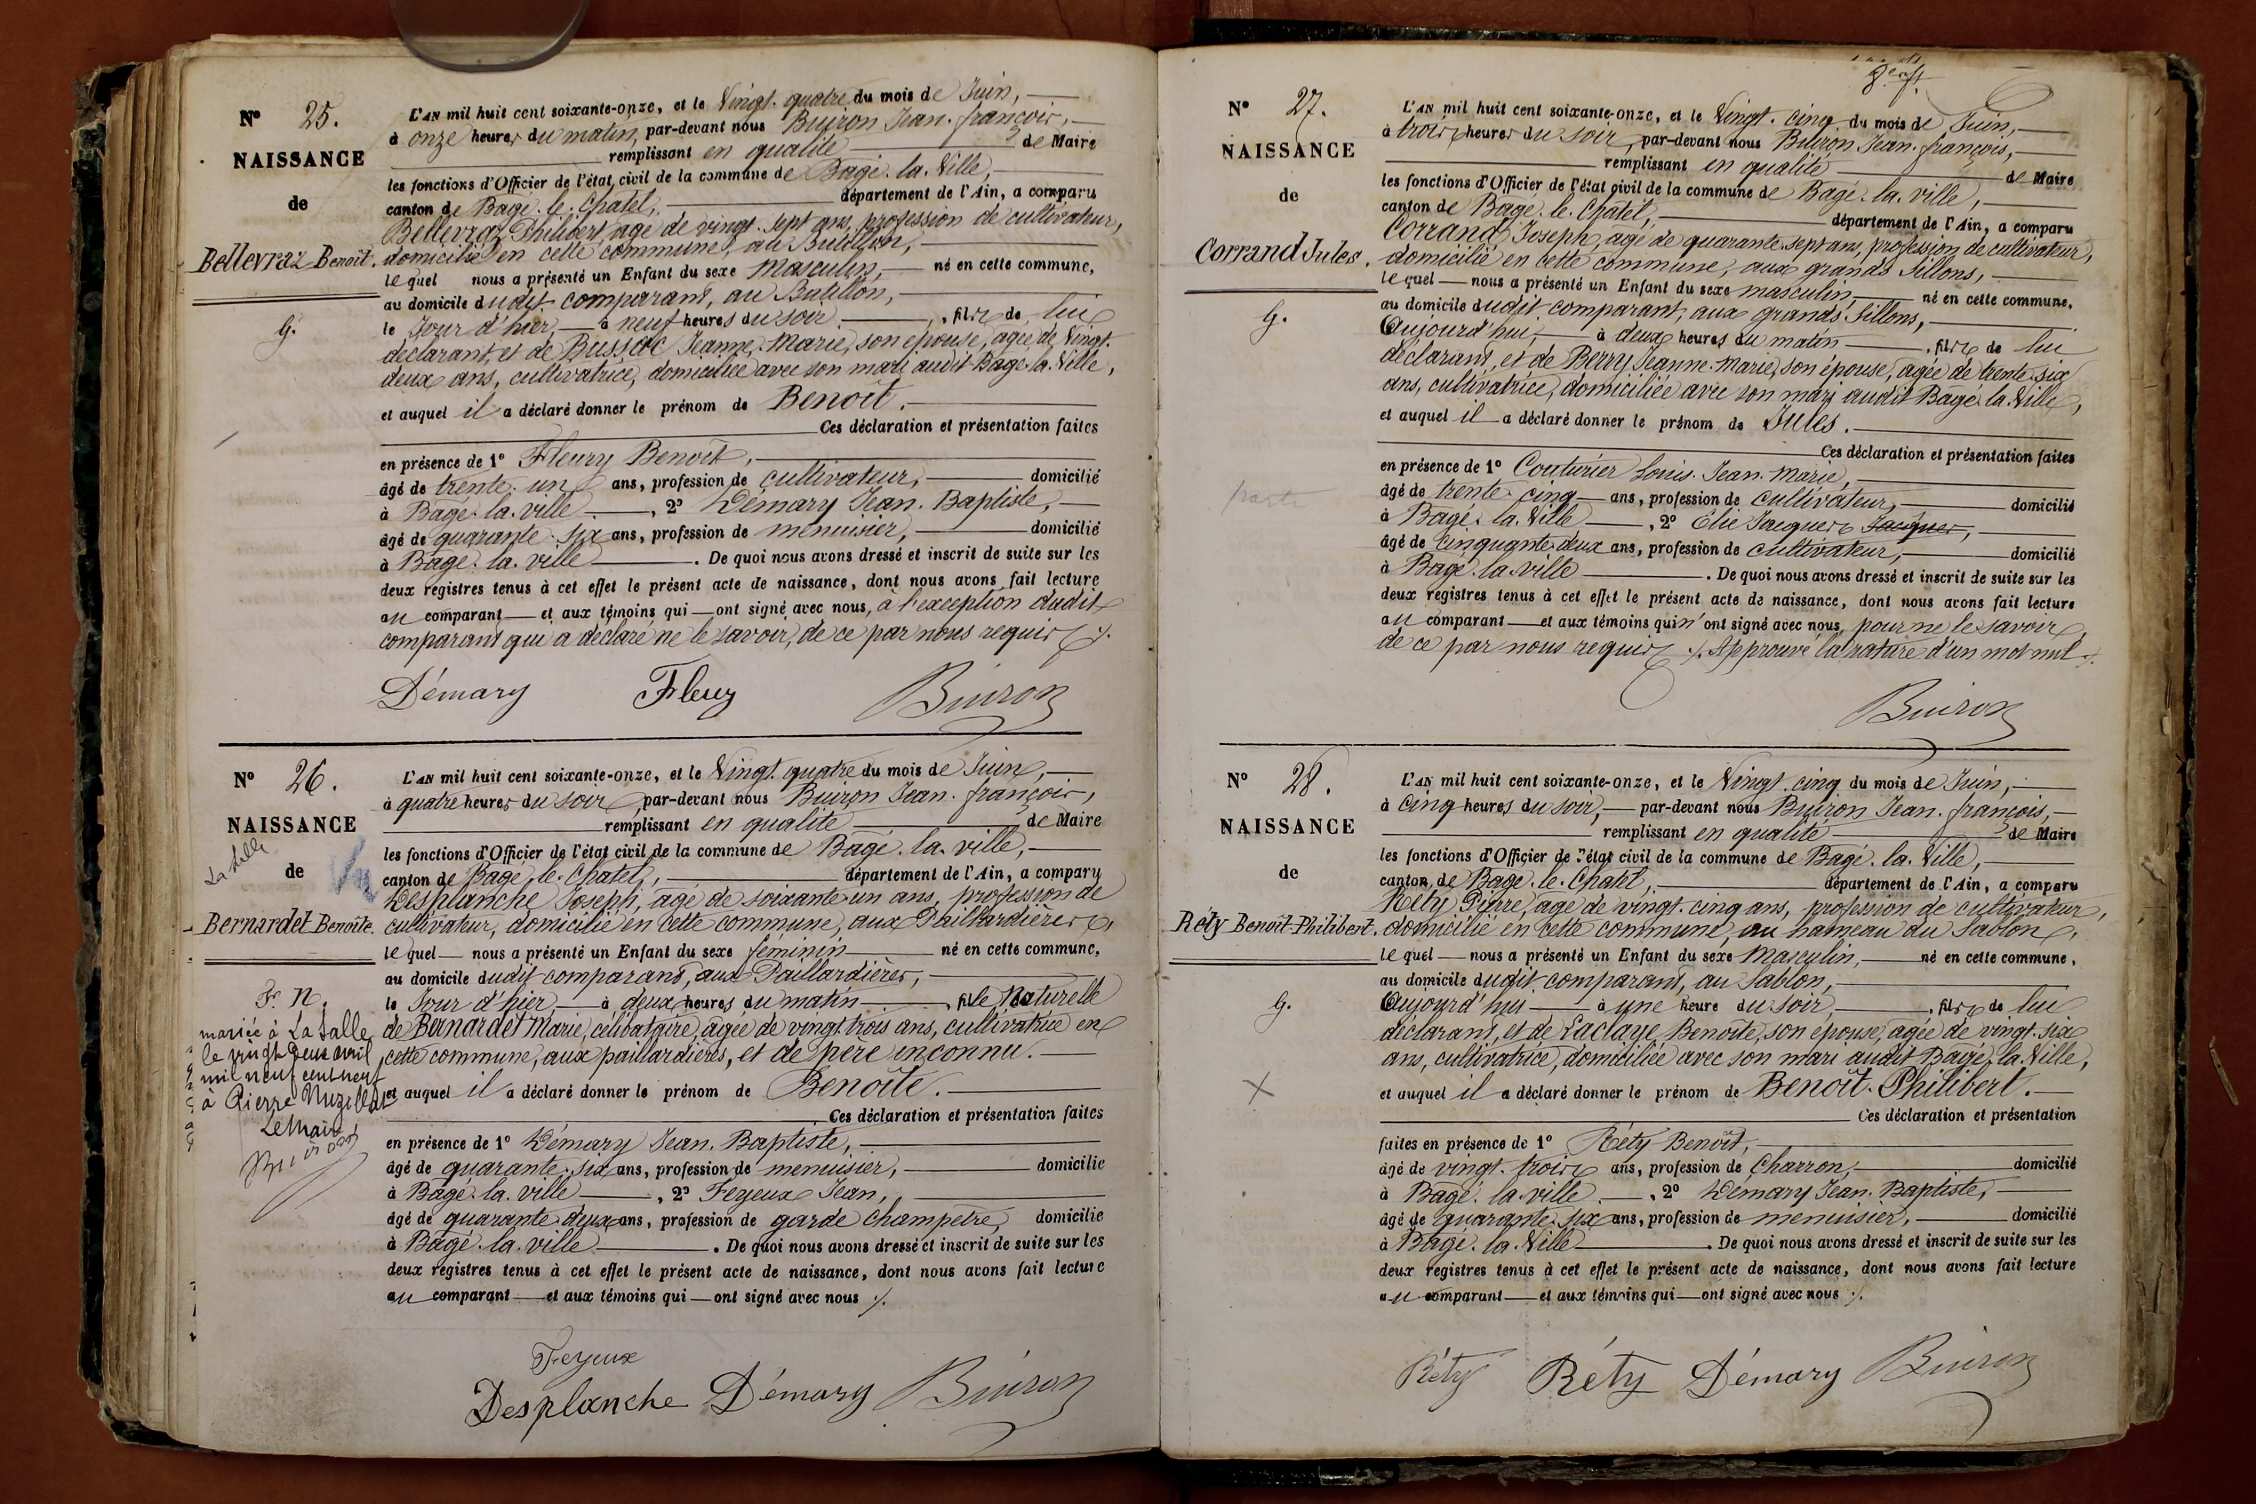 N° 25.
NAISSANCE
de
Bellevraz Benoît.
G.
L'AN mil huit cent soixante-onze, et le Vingt-quatre du mois de Juin,
à onze heures du matin, par-devant nous Buiron Jean-françois,
remplissant en qualité de Maire
les fonctions d'Officier de l'état civil de la commune de Bagé-la-Ville,
canton de Bagé-le-Chatel, département de l'Ain, a comparu
Bellevraz Philibert, âgé de vingt-sept ans, profession de cultivateur,
domicilié en cette commune, au Butillon,
lequel nous a présenté un Enfant du sexe Masculin, né en cette commune,
au domicile dudit comparant, au Butillon,
le Jour d'hier, à neuf heures du soir, fils de lui
déclarant, et de Bussac Jeanne-Marie, son épouse, âgée de Vingt-
deux ans, cultivatrice, domiciliée avec son mari audit Bagé-la-Ville,
et auquel il a déclaré donner le prénom de Benoît.
Ces déclaration et présentation faites
en présence de 1° Fleury Benoît,
âgé de trente-un ans, profession de cultivateur, domicilié
à Bagé-la-ville, 2° Démary Jean-Baptiste,
âgé de quarante-six ans, profession de menuisier, domicilié
à Bagé-la-ville. De quoi nous avons dressé et inscrit de suite sur les
deux registres tenus à cet effet le présent acte de naissance, dont nous avons fait lecture
au comparant et aux témoins qui ont signé avec nous, à l'exception dudit
comparant qui a déclaré ne le savoir, de ce par nous requis ./.
Démary Fleury Buiron
N° 26.
NAISSANCE
La Salle
de
Vu
Bernardet Benoîte.
F. N.
mariée à La Salle
le vingt deux avril
mil neuf cent neuf
à Pierre Nuzillat
Le Maire
Buiron
L'AN mil huit cent soixante-onze, et le Vingt-quatre du mois de Juin,
à quatre heures du soir, par-devant nous Buiron Jean-françois,
remplissant en qualité de Maire
les fonctions d'Officier de l'état civil de la commune de Bagé-la-ville,
canton de Bagé-le-Chatel, département de l'Ain, a comparu
Desplanche Joseph, âgé de soixante-un ans, profession de
cultivateur, domicilié en cette commune, aux Paillardières,
lequel nous a présenté un Enfant du sexe féminin né en cette commune,
au domicile dudit comparant, aux Paillardières,
le Jour d'hier à deux heures du matin, fille Naturelle
de Bernardet Marie, célibataire, âgée de vingt trois ans, cultivatrice en
cette commune, aux paillardières, et de père inconnu.
et auquel il a déclaré donner le prénom de Benoîte.
Ces déclaration et présentation faites
en présence de 1° Démary Jean-Baptiste,
âgé de quarante-six ans, profession de menuisier, domicilié
à Bagé-la-ville, 2° Feyeux Jean,
âgé de quarante-deux ans, profession de garde champêtre, domicilié
à Bagé-la-ville. De quoi nous avons dressé et inscrit de suite sur les
deux registres tenus à cet effet le présent acte de naissance, dont nous avons fait lecture
au comparant et aux témoins qui ont signé avec nous ./.
Feyeux
Desplanche Démary Buiron
N° 27.
NAISSANCE
de
Corrand Jules.
G.
L'AN mil huit cent soixante-onze, et le Vingt-cinq du mois de Juin,
à trois heures du soir, par-devant nous Buiron Jean-françois,
remplissant en qualité de Maire
les fonctions d'Officier de l'état civil de la commune de Bagé-la-ville,
canton de Bagé-le-Chatel, département de l'Ain, a comparu
Corrand Joseph, âgé de quarante-sept ans, profession de cultivateur,
domicilié en cette commune, aux grands Sillons,
lequel nous a présenté un Enfant du sexe masculin, né en cette commune,
au domicile dudit comparant, aux grands Sillons,
Aujourd'hui, à deux heures du matin, fils de lui
déclarant, et de Berry Jeanne-Marie, son épouse, âgée de trente-six
ans, cultivatrice, domiciliée avec son mari audit Bagé-la-Ville,
et auquel il a déclaré donner le prénom de Jules.
Ces déclaration et présentation faites
en présence de 1° Couturier Louis-Jean-Marie,
âgé de trente-cinq ans, profession de cultivateur, domicilié
à Bagé-la-Ville, 2° Elie Jacques Jacques,
âgé de Cinquante-deux ans, profession de cultivateur, domicilié
à Bagé-la-ville. De quoi nous avons dressé et inscrit de suite sur les
deux registres tenus à cet effet le présent acte de naissance, dont nous avons fait lecture
au comparant et aux témoins qui n'ont signé avec nous, pour ne le savoir,
de ce par nous requis ./. Approuvé la rature d'un mot nul ./.
Buiron
N° 28.
NAISSANCE
de
Réty Benoît-Philibert.
G.
L'AN mil huit cent soixante-onze, et le Vingt-cinq du mois de Juin,
à Cinq heures du soir, par-devant nous Buiron Jean-françois,
remplissant en qualité de Maire
les fonctions d'Officier de l'état civil de la commune de Bagé-la-Ville,
canton de Bagé-le-Chatel, département de l'Ain, a comparu
Réty Pierre, âgé de vingt-cinq ans, profession de cultivateur,
domicilié en cette commune, au hameau du Sablon,
lequel nous a présenté un Enfant du sexe Masculin, né en cette commune,
au domicile dudit comparant, au Sablon,
Aujourd'hui à une heure du soir, fils de lui
déclarant, et de Laclaye Benoîte, son épouse, âgée de vingt-six
ans, cultivatrice, domiciliée avec son mari audit Bagé-la-Ville,
et auquel il a déclaré donner le prénom de Benoît-Philibert.
Ces déclaration et présentation
faites en présence de 1° Réty Benoît,
âgé de vingt-trois ans, profession de Charron, domicilié
à Bagé-la-ville, 2° Démary Jean-Baptiste,
âgé de quarante-six ans, profession de menuisier, domicilié
à Bagé-la-Ville. De quoi nous avons dressé et inscrit de suite sur les
deux registres tenus à cet effet le présent acte de naissance, dont nous avons fait lecture
au comparant et aux témoins qui ont signé avec nous ./.
Réty Réty Démary Buiron